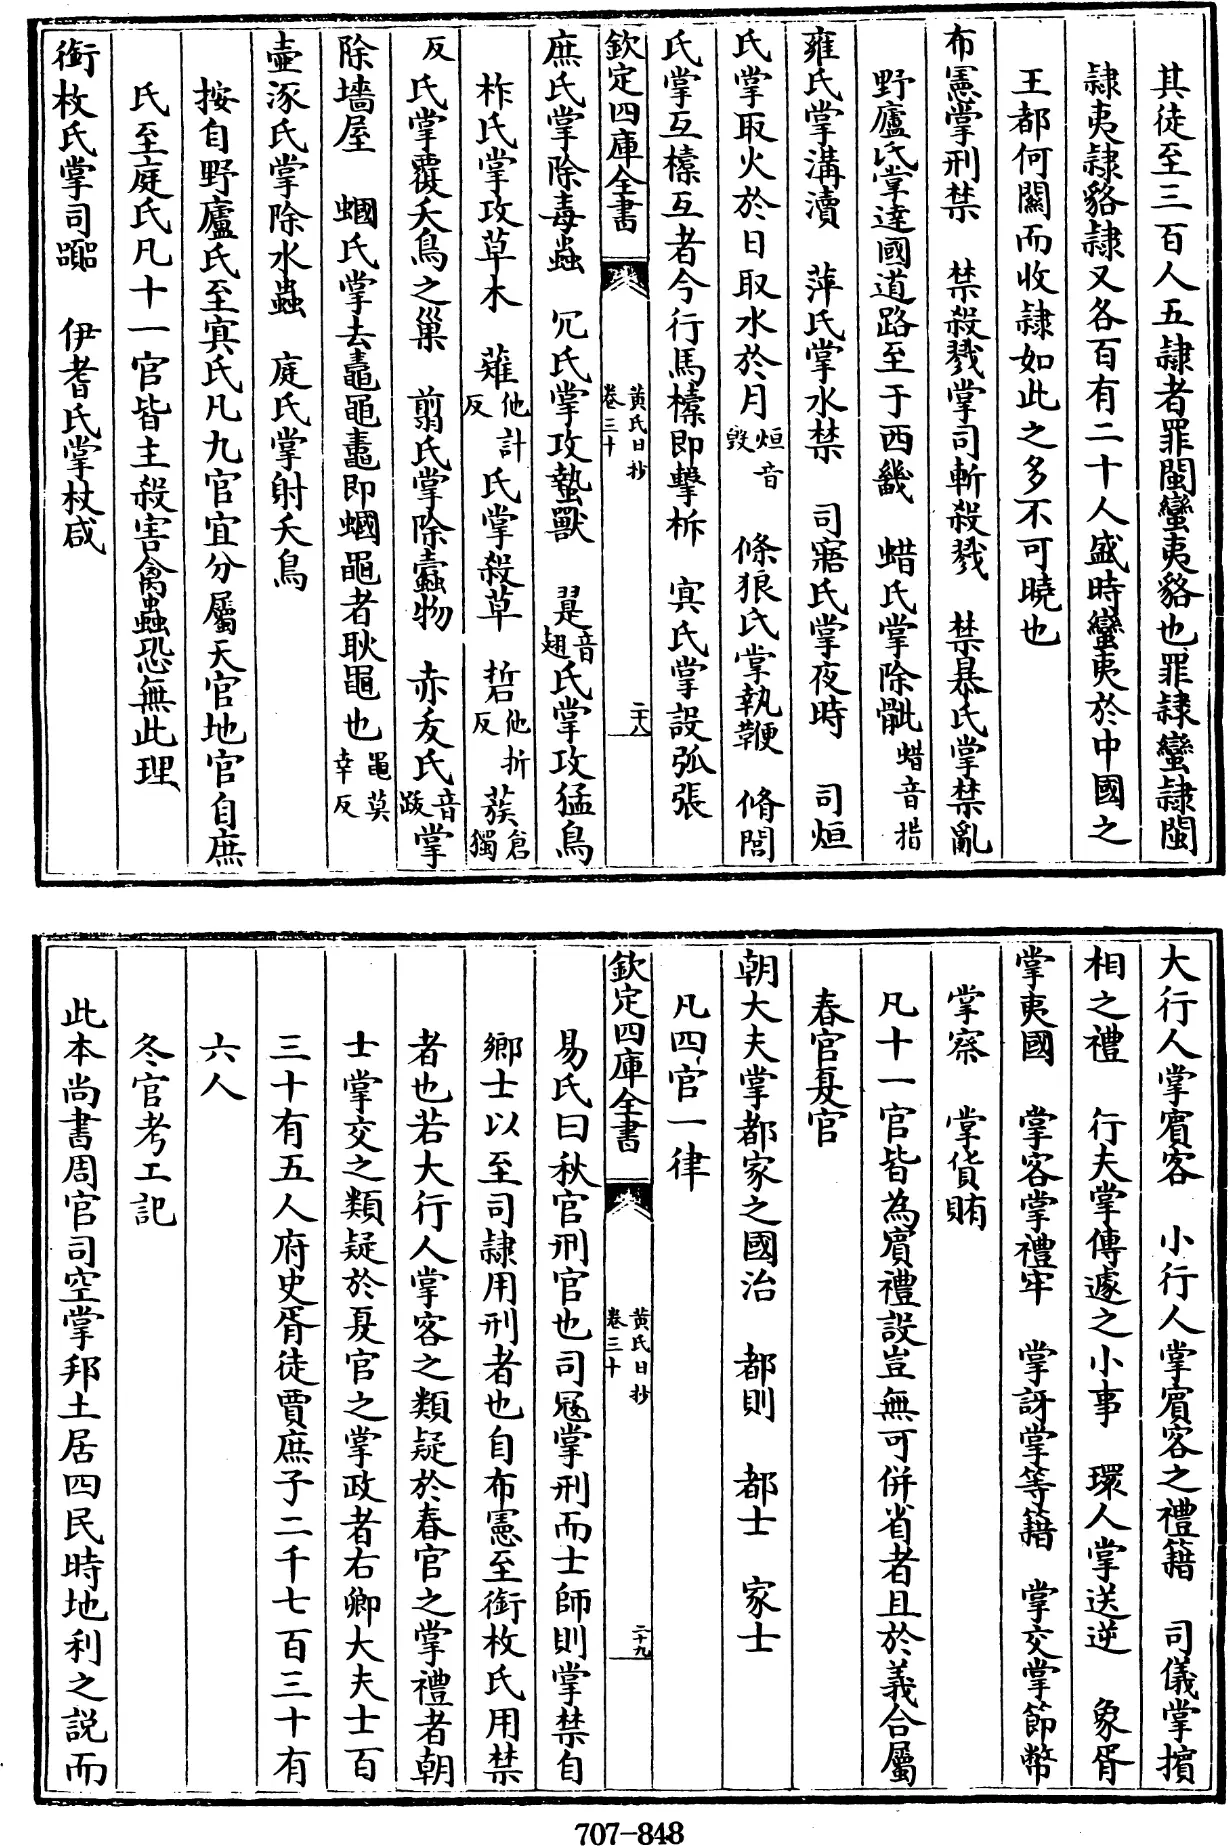 其徒至三百人五隷者罪閩蠻夷貉也罪隷蠻隷閩
隷夷隷貉隷又各百有二十人盛時蠻夷於中國之
王都何關而收隷如此之多不可曉也
布憲掌刑禁　禁殺戮掌司斬殺戮　禁暴氏掌禁亂
野廬氏掌達國道路至于西畿　蜡氏掌除骴蜡音措
雍氏掌溝瀆　萍氏掌水禁　司寤氏掌夜時　司烜
氏掌取火於日取水於月烜音毀　條狼氏掌執鞭　脩閭
氏掌互㯓互者今行馬㯓即擊柝　㝠氏掌設弧張
欽定四庫全書　黄氏日抄卷三十　二十八
庶氏掌除毒蟲　冗氏掌攻蟄獸　翨音翅氏掌攻猛鳥
柞氏掌攻草木　薙他計反氏掌殺草　硩他折反蔟倉獨
反氏掌覆夭鳥之巢　翦氏掌除蠹物　赤犮氏音跋掌
除墻屋　蟈氏掌去鼃黽鼃即蟈黽者耿黽也黽莫幸反
壷涿氏掌除水蟲　庭氏掌射夭鳥
按自野廬氏至㝠氏凡九官宜分屬天官地官自庶
氏至庭氏凡十一官皆主殺害禽蟲恐無此理
銜枚氏掌司嘂　伊耆氏掌杖咸
大行人掌賔客　小行人掌賔客之禮籍　司儀掌擯
相之禮　行夫掌傳遽之小事　環人掌送逆　象胥
掌夷國　掌客掌禮牢　掌訝掌等籍　掌交掌節幣
掌察　掌貨賄
凡十一官皆為賔禮設豈無可併省者且於義合屬
春官夏官
朝大夫掌都家之國治　都則　都士　家士
凡四官一律
欽定四庫全書　黄氏日抄卷三十　二十九
易氏曰秋官刑官也司冦掌刑而士師則掌禁自
鄉士以至司隷用刑者也自布憲至銜枚氏用禁
者也若大行人掌客之類疑於春官之掌禮者朝
士掌交之類疑於夏官之掌政者右卿大夫士百
三十有五人府史胥徒賈庶子二千七百三十有
六人
冬官考工記
此本尚書周官司空掌邦土居四民時地利之説而
707-848